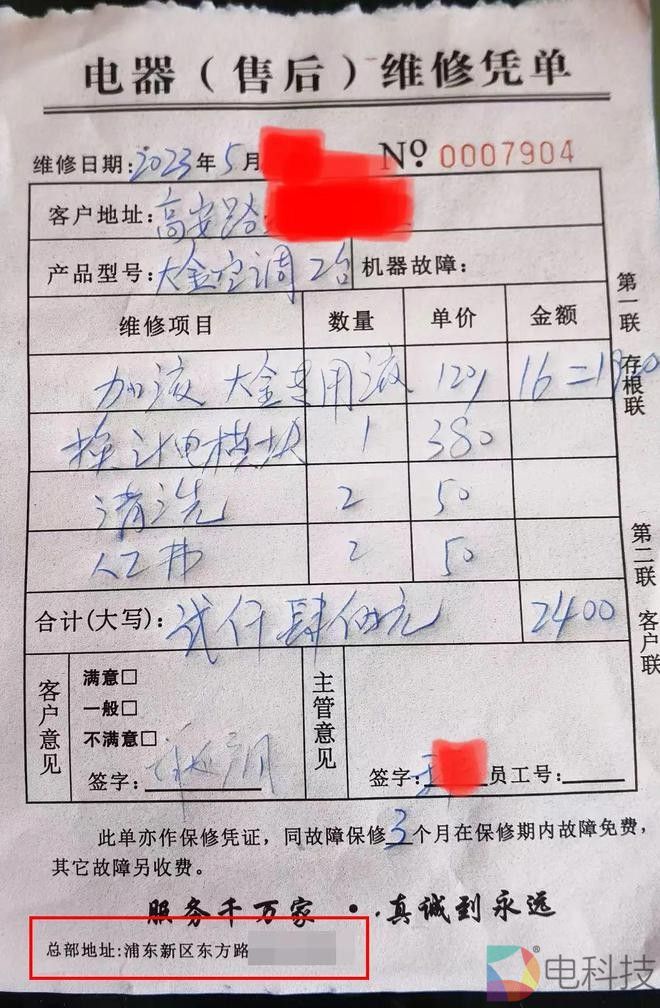 电器（售后）维修凭单
维修日期：2023年5月
No 0007904
客户地址：高安路
产品型号：大金空调 2台 机器故障：
维修项目 数量 单价 金额
加液 大金专用液 120/ 16=1920
换计电模块 1 380
清洗 2 50
人工费 2 50
合计(大写)：贰仟肆佰元 2400
客户意见
满意□
一般□
不满意□
签字：
主管意见
签字： 员工号：
第一联 存根联
第二联 客户联
此单亦作保修凭证，同故障保修3个月在保修期内故障免费，
其它故障另收费。
服务千万家 · 真诚到永远
总部地址：浦东新区东方路
电科技